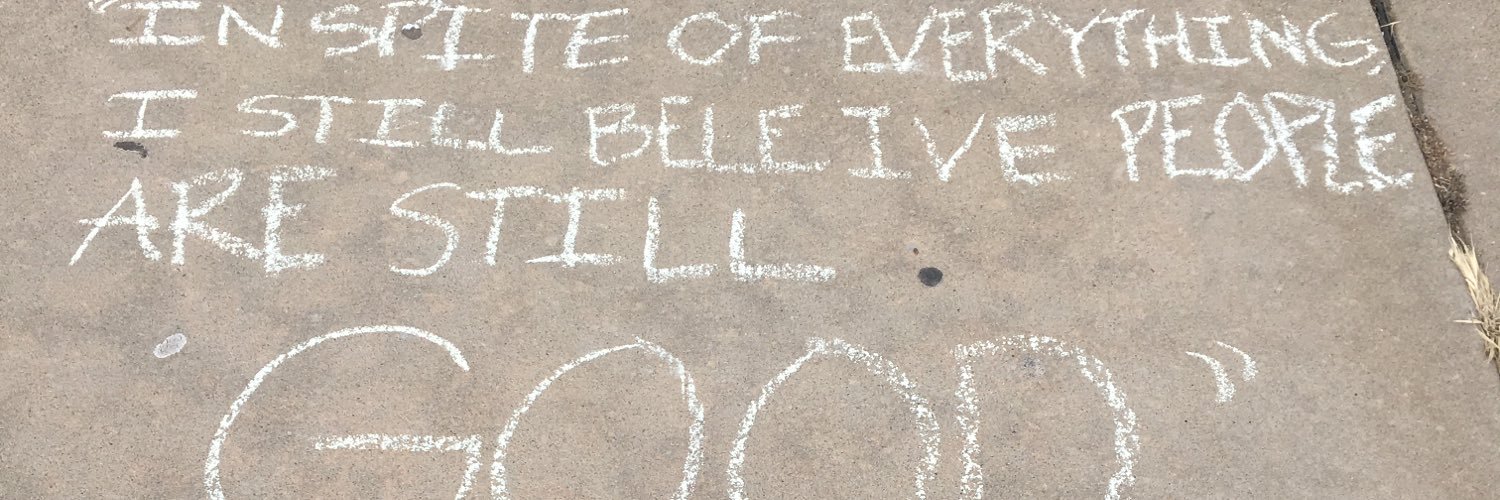 "IN SPITE OF EVERYTHING,
I STILL BELEIVE PEOPLE
ARE STILL
GOOD"